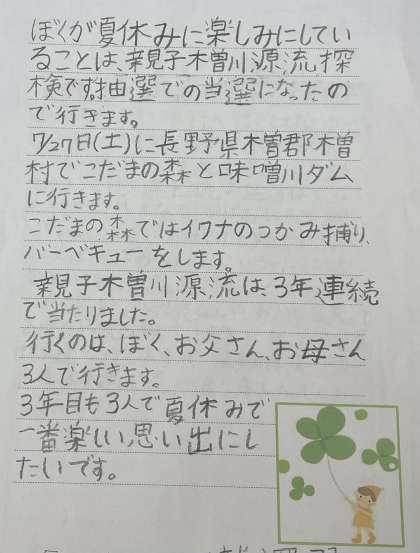 ぼくが夏休みに楽しみにしてい
ることは、親子木曽川源流探
検です。抽選での当選になったの
で行きます。
7/27日(土)に長野県木曽郡木曽
村でこだまの森と味噌川ダム
に行きます。
こだまの森ではイワナのつかみ捕り、
バーベキューをします。
親子木曽川源流は、3年連続
で当たりました。
行くのは、ぼく、お父さん、お母さん
3人で行きます。
3年目も3人で夏休みで
一番楽しい思い出にし
たいです。